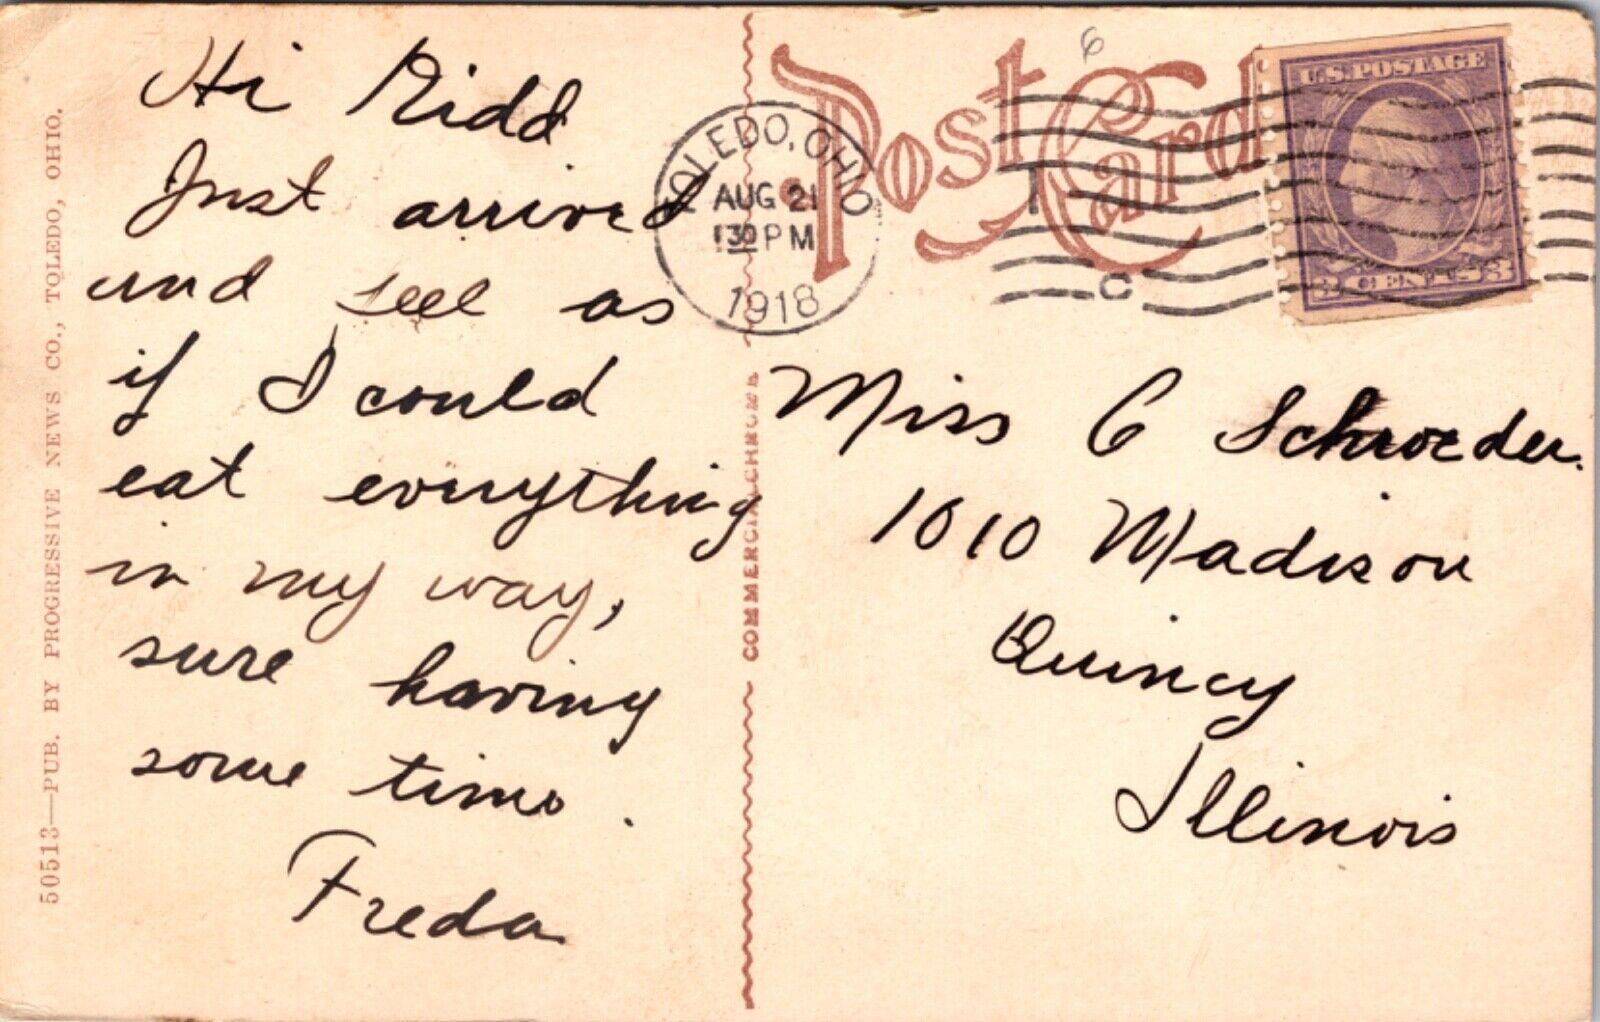 Hi Kidd
Just arrived
and feel as
if I could
eat everything
in my way,
sure having
some time.
Freda
50513—PUB. BY PROGRESSIVE NEWS CO., TOLEDO, OHIO.
COMMERCIALCHROME
Post Card
6
TOLEDO, OHIO
AUG 21
1 30 PM
1918
U.S. POSTAGE
3 CENTS 3
Miss C Schroeder.
1010 Madison
Quincy
Illinois